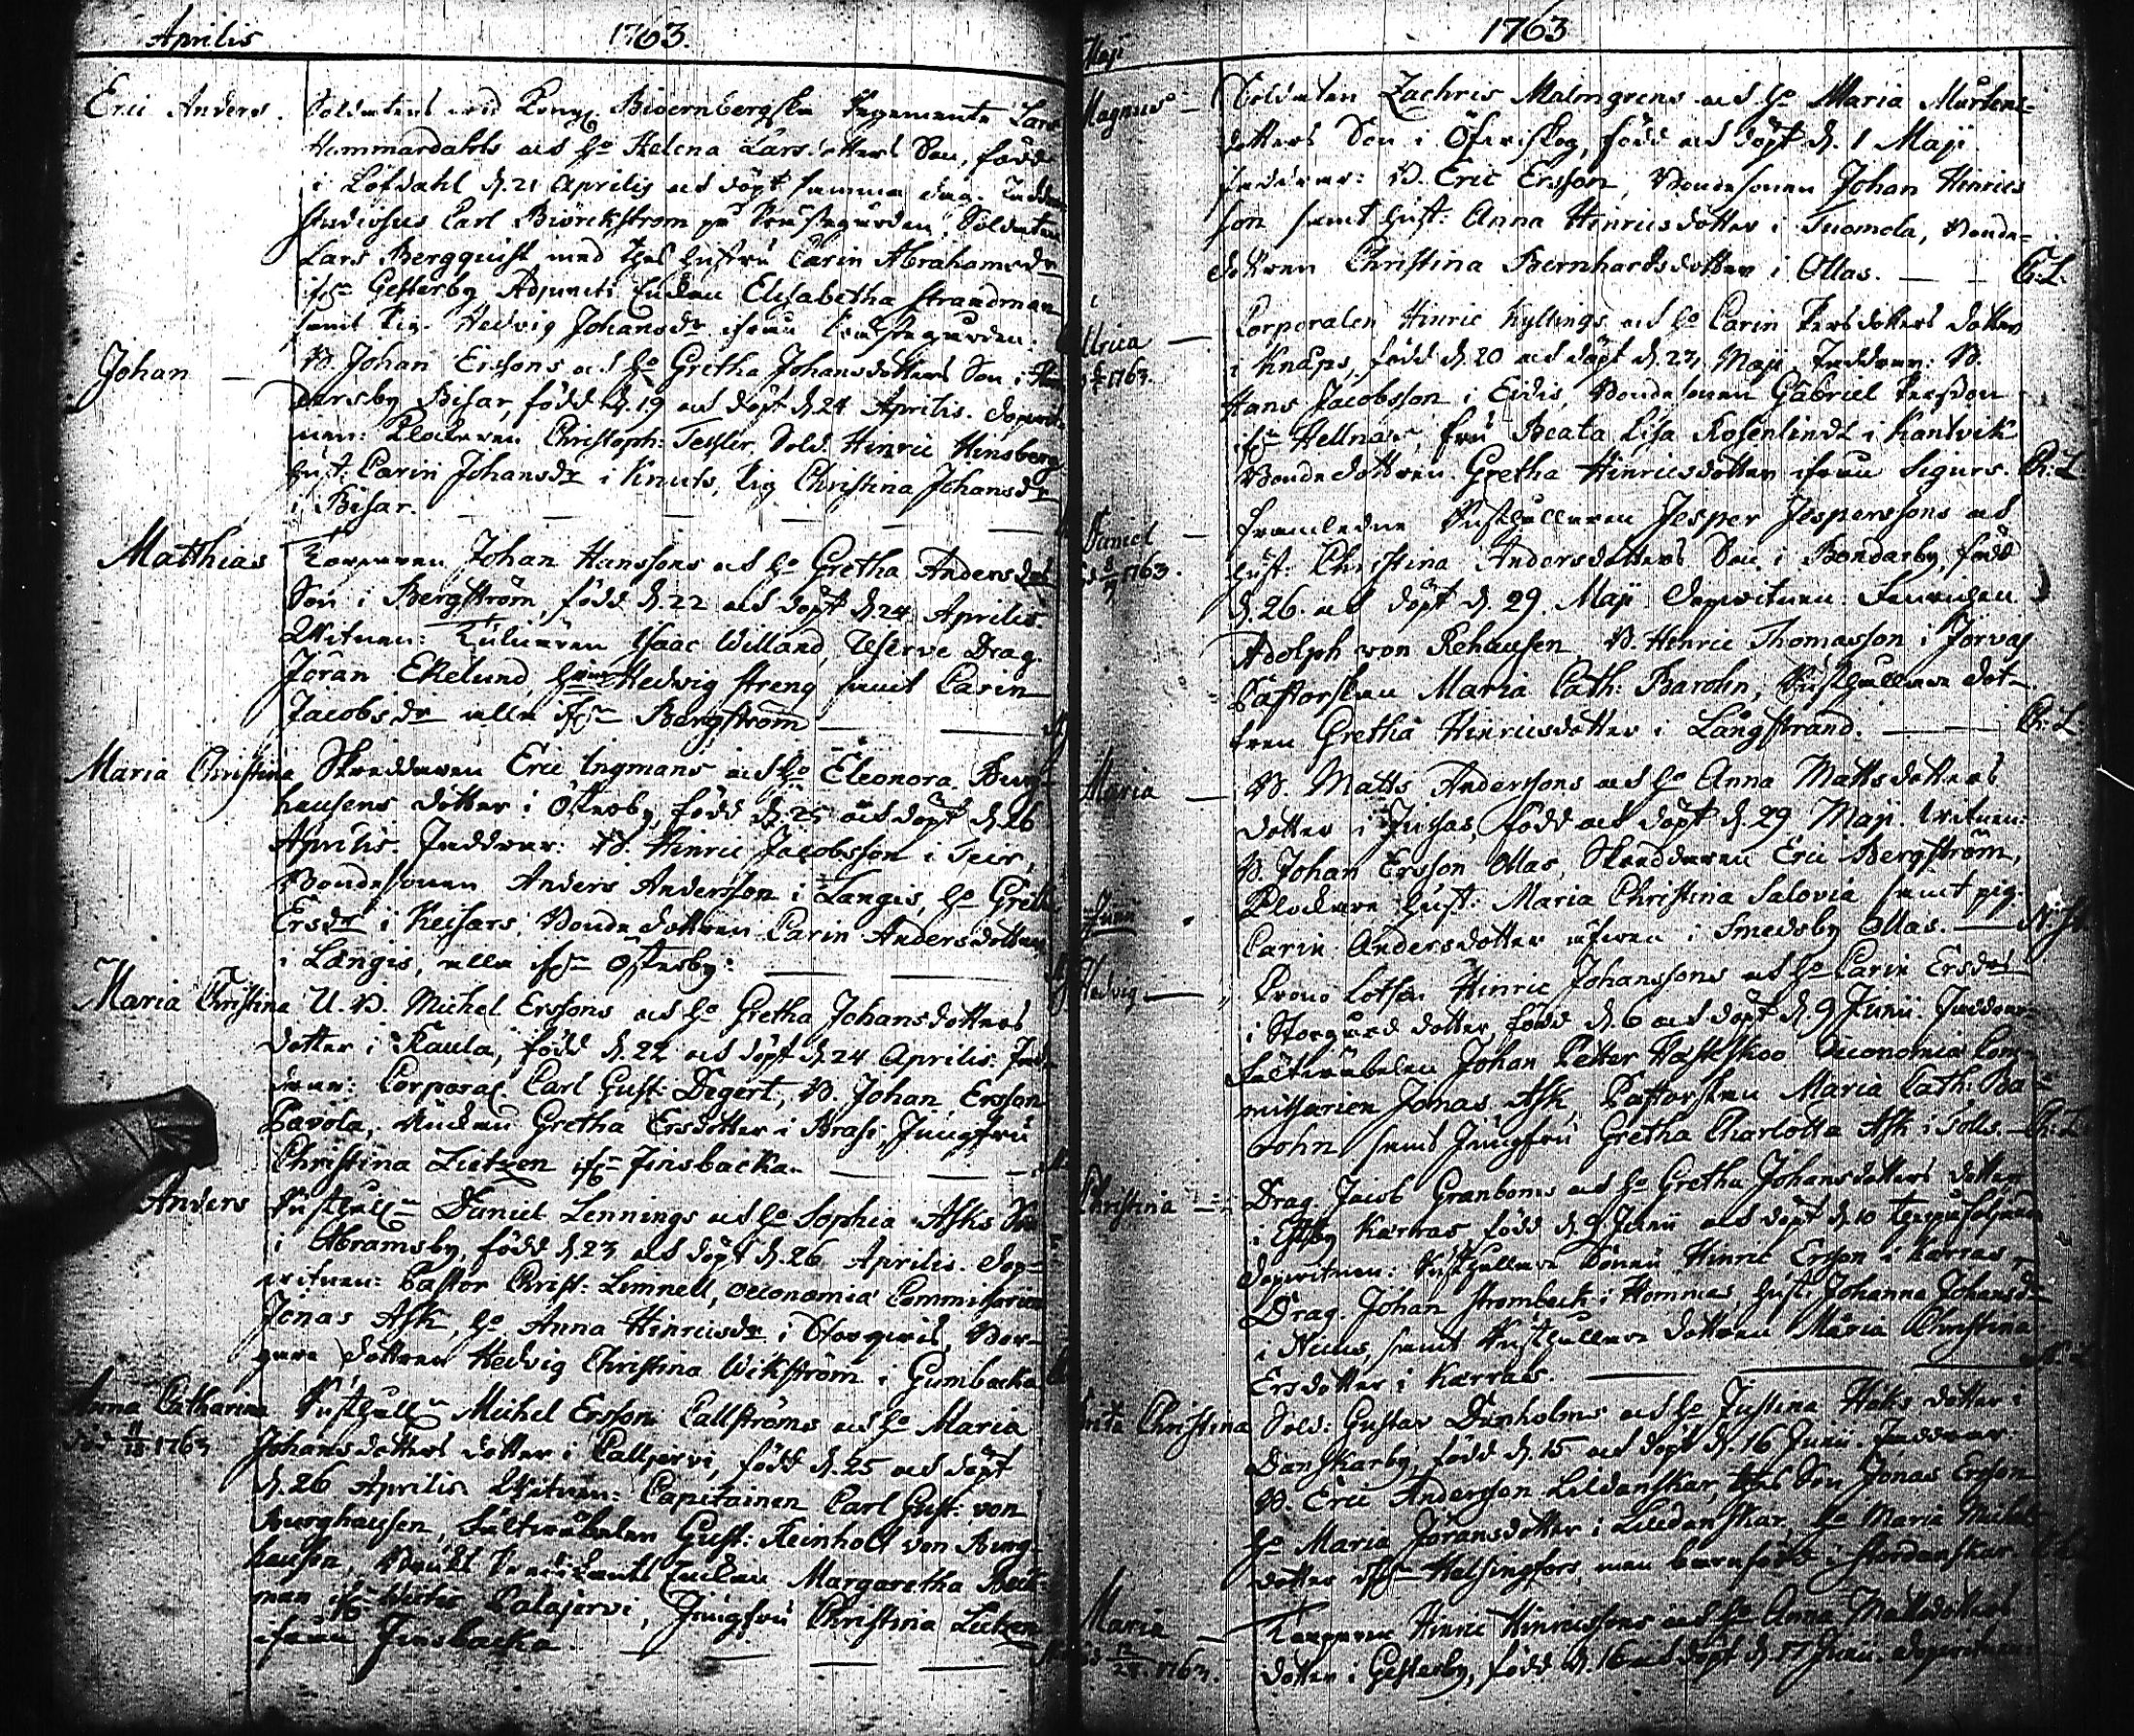 Aprilis 1763.
Eric Anders. Soldatens wid Kongl. Bioernbergska Regemente Lars
Hammardahls och Ho Helena Larsdotters Son, född
i Löfdahl d. 21 Aprilis och döpt samma dag. Faddrar
Studiosus Carl Biörckström på Prästegården, Soldaten
Lars Bergquist med thes hustru Carin Abrahamsdr
ifrån Gesterby Adjuncts Enckan Elisabetha Strandman
samt Pig. Hedvig Johansdr ifrån Prästegården.
Johan — B. Johan Erssons och Ho Gretha Johansdotters Son i
darsby Bisar, född d. 19 och döpt d. 24 Aprilis. Dopwitt-
nen: Klockaren Christoph: Tessler, Sold. Hinric Hinsberg
Hust. Carin Johansdr i Knuts, Pig Christina Johansdr
i Bisar.
Matthias Torparen Johan Hanssons och Ho Gretha Andersdrs
Son i Bergström, född d. 22 och döpt d. 24 Aprilis
Witnen: Isaac Willand, Reserve Drag.
Jöran Ekelund, Hedvig Streng samt Carin
Jacobsdr alla ifrån Bergström
Maria Christina Skreddaren Eric Ingmans och Ho Eleonora Burg-
hausens dotter i Österby, född d. 25 och döpt d. 26
Aprilis. Faddrar: B. Hinric Jacobsson i Teir,
Bondesonen Anders Andersson i Längis, Ho Gretha
Ersdr i Keisars, Bondedottren Carin Andersdotter
i Längis, alla ifrån Österby:
Maria Christina U. B. Michel Erssons och Ho Gretha Johansdotters
dotter i Flaula, född d. 22 och döpt d. 24 Aprilis: Fad-
drar: Corporal Carl Gust: Degert, B. Johan Ersson
Pavola, Enckan Gretha Ersdotter i Brasi, Jungfru
Christina Lietzen ifrån Finsbacka.
Anders Rusthåll. Daniel Lennings och Ho Sophia Asks Son
i Abramsby, född d. 23 och döpt d. 26 Aprilis. Dop-
witnen: Pastor Christ: Limnell, Oeconomiæ Commissarien
Jonas Ask, Ho Anna Hinricsdr i Storqvis, Bor-
gare dottren Hedvig Christina Wikström i Gumbacka
Anna Catharina Rusthåll. Michel Ersson Callströms och Ho Maria
död 11/18 1763 Johansdotters dotter i Calljervi, född d. 25 och döpt
d. 26 Aprilis Witnen: Capitainen Carl Gust: von
Burghausen, Fältwäbelen Gust: Reinhold von Burg-
hausen, Enckan Margaretha Beck-
man ifrån Palajervi, Jungfru Christina Lietzen
ifrån Finsbacka.
Maji 1763
Magnus — Soldaten Zachris Malmgrens och Ho Maria Mårtens-
dotters Son i Öfvriskog, född och döpt d. 1 Maji
Faddrar: B. Eric Ersson, Bondesonen Johan Hinrics
son samt Hust: Anna Hinricsdotter i Tuomola, Bonde-
dottren Christina Bernhardsdotter i Ollas. — C: L.
Ulrica — Corporalen Hinric Kyllings och Ho Carin Persdotters dotter
1763. i Knaps, född d. 20 och döpt d. 23 Maji Faddrar: B.
Hans Jacobsson i Eidis, Bondesonen Gabriel Persson
ifrån Hellnas, fru Beata Lisa Rosenlindt i Kantvik
Bondedottren Gretha Hinricsdotter ifrån Sigurs. C: L
Daniel — Framledne Rusthållaren Jesper Jesperssons och
död 8/7 1763. Hust: Christina Andersdotters Son i Bondarby, född
d. 26. och döpt d. 29. Maji Dopwitnen: Fenrichen
Adolph von Rehausen, B. Henric Thomasson i Jorvas
Pastorskan Maria Cath: Barohn, Rusthållare dot-
tren Gretha Hinricsdotter i Långstrand. — C: L
Maria — B. Matts Anderssons och Ho Anna Mattsdotters
dotter i Jussas, född och döpt d. 29 Maji. Witnen:
B. Johan Ersson Ollas, Skreddaren Eric Bergström,
Klockare Hust: Maria Christina Salovia samt pig.
Junii Carin Andersdotter ifrån i Smedsby Ollas.
Hedvig — Crono Lotsen Hinric Johanssons och Ho Carin Ersdrs
i Storgård dotter, född d. 6 och döpt d. 9 Junii. Faddrar
Fältwäbelen Johan Petter Hästskoo Oeconomiæ Com-
missarien Jonas Ask, Pastorskan Maria Cath: Ba-
rohn samt Jungfru Gretha Charlotta Ask i Tolls. — C: L
Christina — Drag. Jacob Granboms och Ho Gretha Johansdotters dotter
i Estby Karras född d. 9 Junii och döpt d. 10
Dopwitnen: Rusthållare Sonen Hinric Ersson i Karras,
Drag. Johan Strombeck i Hommas, Hust: Johanna Johansdr
i Nuus, samt Rusthållare dottren Maria Christina
Ersdotter i Karras
Christina Sold: Gustav Dunholms och Ho Justina Höks dotter i
Danskarby, född d. 15 och döpt d. 16 Junii. Faddrar
B. Eric Andersson Lildanskar, thes Son Jonas Ersson
Ho Maria Jöransdotter i Lilldanskar, Ho Maria Michels
dotter ifrån Helsingfors, men barnfödd i Stordanskar.
Maria — Torparen Hinric Hinricssons och Ho Anna Mattsdotters
död 12/24 1763. dotter i Gesterby, född d. 16 och döpt d. 17 Junii. Dopwitnen